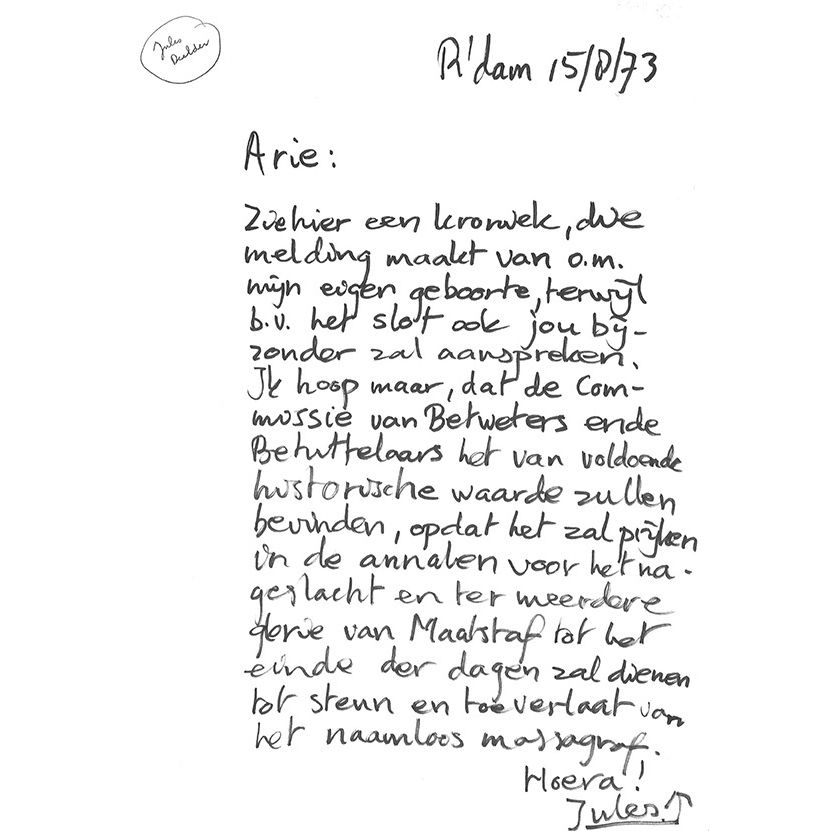 Jules
Deelder
R'dam 15/8/73
Arie:
Ziehier een kroniek, die
melding maakt van o.m.
mijn eigen geboorte, terwijl
b.v. het slot ook jou bij-
zonder zal aanspreken.
Ik hoop maar, dat de Com-
missie van Betweters ende
Betuttelaars het van voldoende
historische waarde zullen
bevinden, opdat het zal prijken
in de annalen voor het na-
geslacht en ter meerdere
glorie van Maatstaf tot het
einde der dagen zal dienen
tot steun en toeverlaat van
het naamloos massagraf.
Hoera!
Jules.